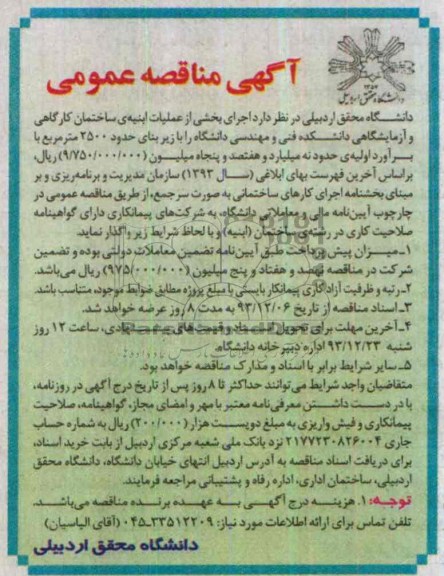 دانشگاه محقق اردبیلی
آگهی مناقصه عمومی
دانشـگاه محقق اردبیلی در نظر دارد اجرای بخشی از عملیات ابنیه‌ی ساختمان کارگاهی
و آزمایشگاهی دانشـکده فنی و مهندسی دانشگاه را با زیر بنای حدود ۲۵۰۰ مترمربع با
بـرآورد اولیه‌ی حدود نه میلیارد و هفتصد و پنجاه میلیـون (۹/۷۵۰/۰۰۰/۰۰۰) ریال،
براساس آخرین فهرست بهای ابلاغی (سـال ۱۳۹۳) سازمان مدیریت و برنامه‌ریزی و بر
مبنای بخشنامه اجرای کارهای ساختمانی به صورت سرجمع، از طریق مناقصه عمومی در
چارچوب آیین‌نامه مالی و معاملاتی دانشگاه، به شرکت‌های پیمانکاری دارای گواهینامه
صلاحیت کاری در رشته‌ی ساختمان (ابنیه) و با لحاظ شرایط زیر واگذار نماید.
۱ـ میـزان پیش پرداخت طبق آیین‌نامه تضمین معاملات دولتی بوده و تضمین
شرکت در مناقصه نهصد و هفتاد و پنج میلیون (۹۷۵/۰۰۰/۰۰۰) ریال می‌باشد.
۲ـ رتبه و ظرفیت آزاد کاری پیمانکار بایستی با مبلغ پروژه مطابق ضوابط موجود، متناسب باشد.
۳ـ اسناد مناقصه از تاریخ ۹۳/۱۲/۰۶ به مدت ۸ روز عرضه خواهد شد.
۴ـ آخرین مهلت برای تحویل اسـناد و قیمت‌های پیشنهادی، ساعت ۱۲ روز
شنبه ۹۳/۱۲/۲۳ اداره دبیرخانه دانشگاه.
۵ـ سایر شرایط برابر با اسناد و مدارک مناقصه خواهد بود.
متقاضیان واجد شرایط می‌توانند حداکثر تا ۸ روز پس از تاریخ درج آگهی در روزنامه،
با در دسـت داشـتن معرفی‌نامه معتبر با مهر و امضای مجاز، گواهینامه، صلاحیت
پیمانکاری و فیش واریزی به مبلغ دویست هزار (۲۰۰/۰۰۰) ریال به شماره حساب
جاری ۲۱۷۷۲۳۰۸۲۶۰۰۴ نزد بانک ملی شعبه مرکزی اردبیل از بابت خرید اسناد،
برای دریافت اسناد مناقصه به آدرس اردبیل انتهای خیابان دانشگاه، دانشگاه محقق
اردبیلی، ساختمان اداری، اداره رفاه و پشتیبانی مراجعه فرمایند.
توجه: ۱. هزینـه درج آگهـی بـه عهـده برنـده مناقصه می‌باشـد.
تلفن تماس برای ارائه اطلاعات مورد نیاز: ۳۳۵۱۲۲۰۹-۰۴۵ (آقای الیاسیان)
دانشگاه محقق اردبیلی